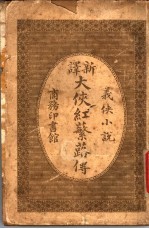 義俠小說
新譯
大俠紅蘩蕗傳
商務印書館